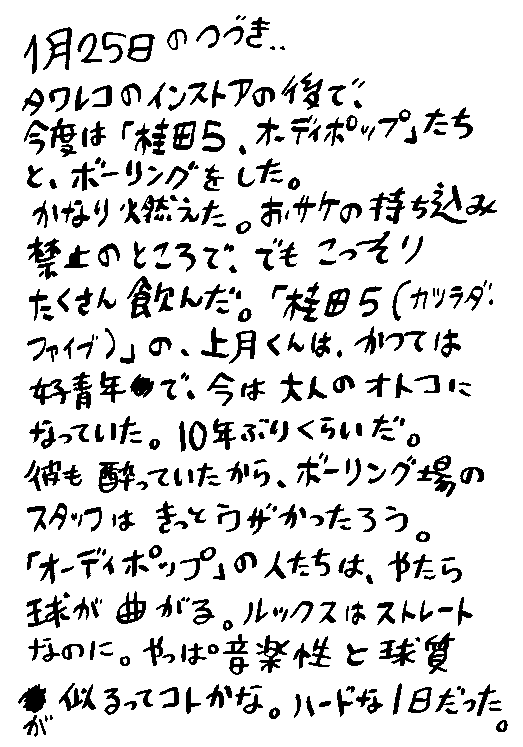 1月25日のつづき..
タワレコのインストアの後で、
今度は「桂田5、オーディポップ」たち
と、ボーリングをした。
かなり燃えた。おサケの持ち込み
禁止のところで、でもこっそり
たくさん飲んだ。「桂田5(カツラダ・
ファイブ)」の、上月くんは、かつては
好青年で、今は大人のオトコに
なっていた。10年ぶりくらいだ。
彼も酔っていたから、ボーリング場の
スタッフはきっとウザかったろう。
「オーディポップ」の人たちは、やたら
球が曲がる。ルックスはストレート
なのに。やっぱ音楽性と球質
が似るってコトかな。ハードな1日だった。